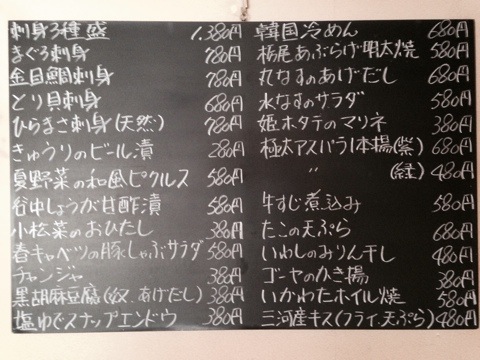 刺身3種盛 1,380円
まぐろ刺身 780円
金目鯛刺身 780円
とり貝刺身 680円
ひらまさ刺身(天然) 780円
きゅうりのビール漬 280円
夏野菜の和風ピクルス 580円
谷中しょうが甘酢漬 580円
小松菜のおひたし 380円
春キャベツの豚しゃぶサラダ 580円
チャンジャ 380円
黒胡麻豆腐(奴、あげだし) 380円
塩ゆでスナップエンドウ 380円
韓国冷めん 680円
栃尾あぶらげ明太焼 580円
丸なすのあげだし 680円
水なすのサラダ 580円
姫ホタテのマリネ 380円
極太アスパラ1本揚(紫) 680円
〃 (緑) 480円
牛すじ煮込み 580円
たこの天ぷら 680円
いわしのみりん干し 480円
ゴーヤのかき揚 380円
いかわたホイル焼 580円
三河産キス(フライ、天ぷら) 480円